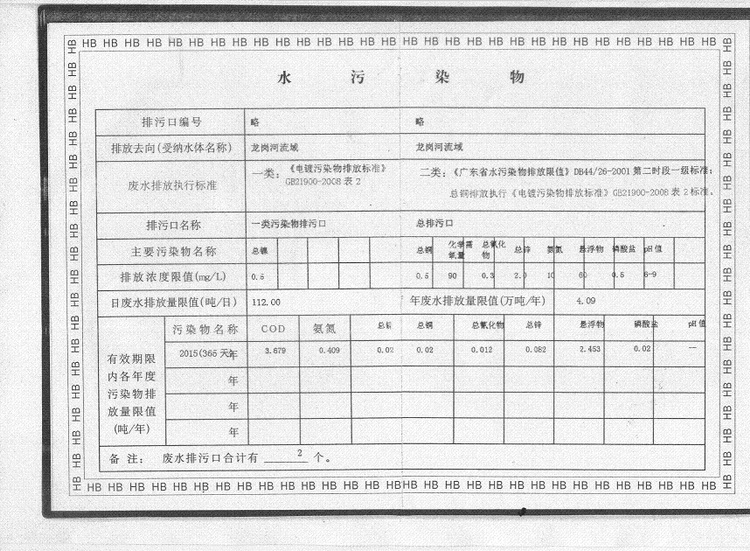 HB HB HB HB HB HB HB HB HB HB HB HB HB HB HB HB HB HB HB HB HB HB HB HB HB HB
水 污 染 物
排污口编号 略 略
排放去向(受纳水体名称) 龙岗河流域 龙岗河流域
废水排放执行标准 一类：《电镀污染物排放标准》 GB21900-2008 表 2 二类：《广东省水污染物排放限值》DB44/26-2001 第二时段一级标准；
总铜排放执行《电镀污染物排放标准》GB21900-2008 表 2 标准。
排污口名称 一类污染物排污口 总排污口
主要污染物名称 总镍 总铜 化学需氧量 总氰化物 总锌 氨氮 悬浮物 磷酸盐 pH 值
排放浓度限值(mg/L) 0.5 0.5 90 0.3 2.0 10 60 0.5 6-9
日废水排放量限值(吨/日) 112.00 年废水排放量限值(万吨/年) 4.09
有效期限内各年度污染物排放量限值(吨/年)
污染物名称 COD 氨氮 总铜 总氰化物 总锌 悬浮物 磷酸盐 pH 值
2015(365 天)年 3.679 0.409 0.02 0.02 0.012 0.082 2.453 0.02 —
年
年
年
备 注： 废水排污口合计有 2 个。
HB HB HB HB HB HB HB HB HB HB HB HB HB HB HB HB HB HB HB HB HB HB HB HB HB HB